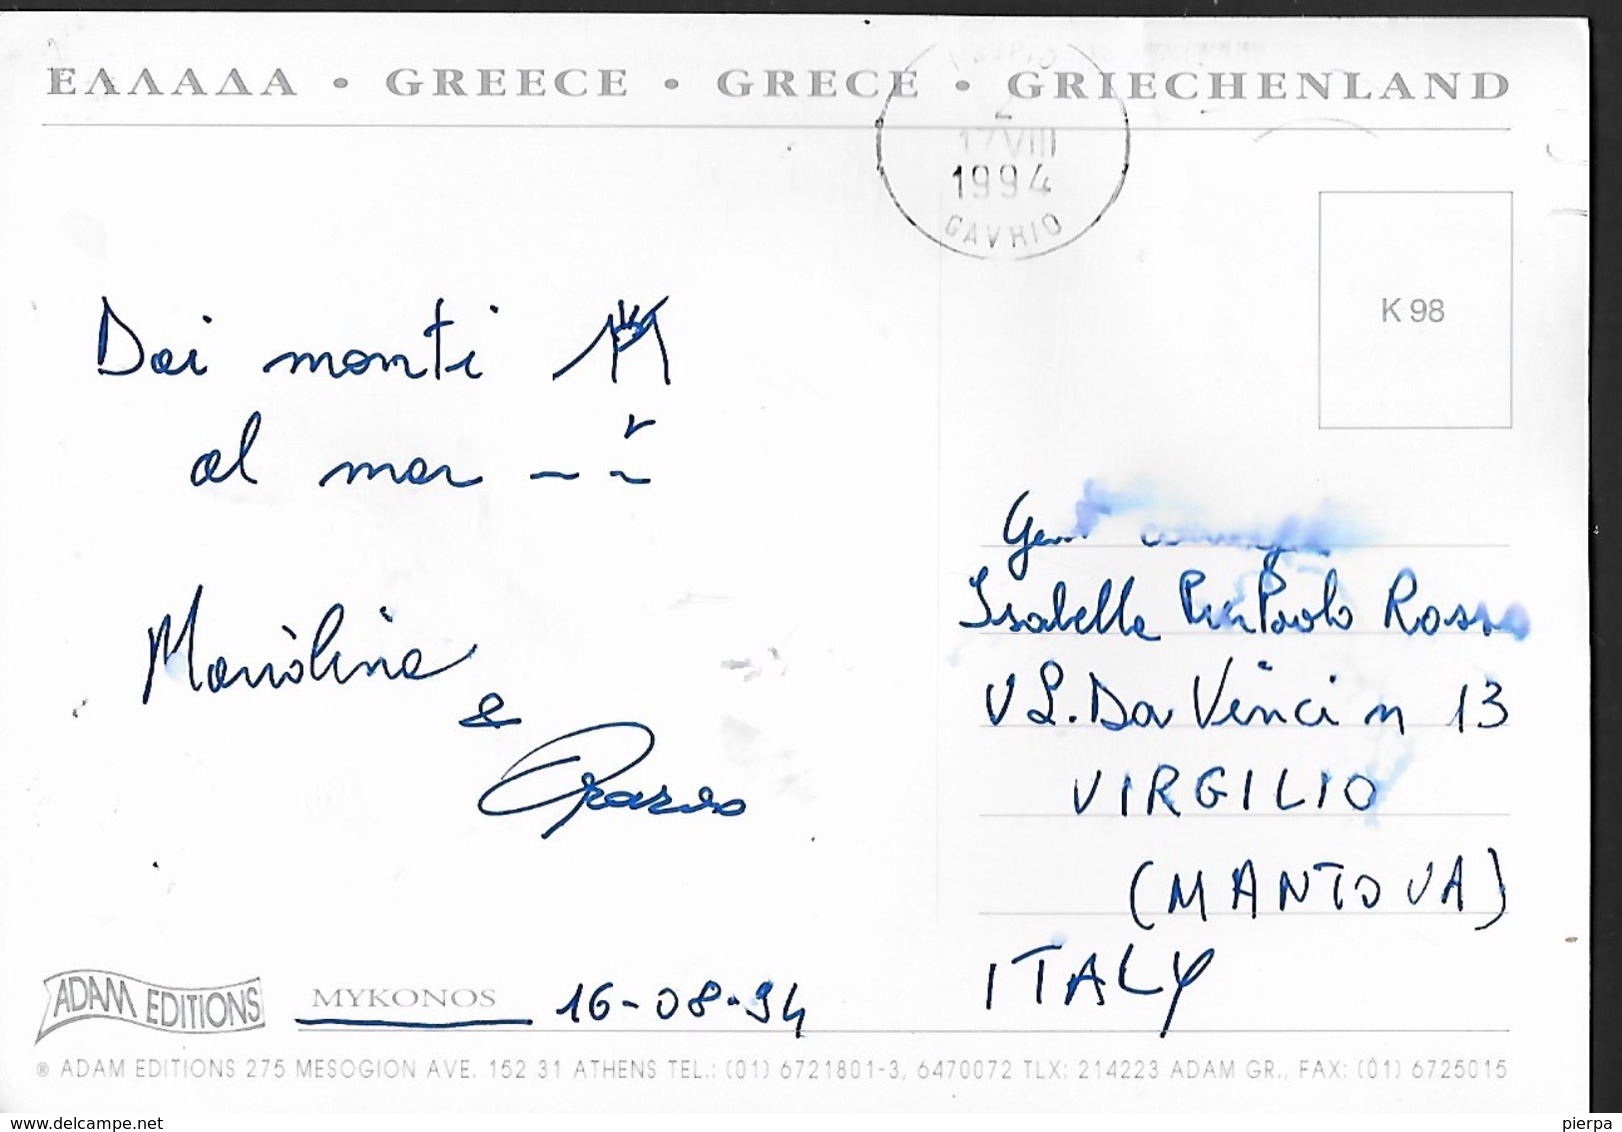 ΕΛΛΑΔΑ • GREECE • GRECE • GRIECHENLAND
2
17 VIII
1994
GAVRIO
K 98
Dai monti
al mar
Mariolina
&
Isabella PierPaolo Rosso
V L. Da Vinci n 13
VIRGILIO
(MANTOVA)
ITALY
ADAM EDITIONS
MYKONOS
16-08-94
® ADAM EDITIONS 275 MESOGION AVE. 152 31 ATHENS TEL.: (01) 6721801-3, 6470072 TLX: 214223 ADAM GR., FAX: (01) 6725015
www.delcampe.net
pierpa